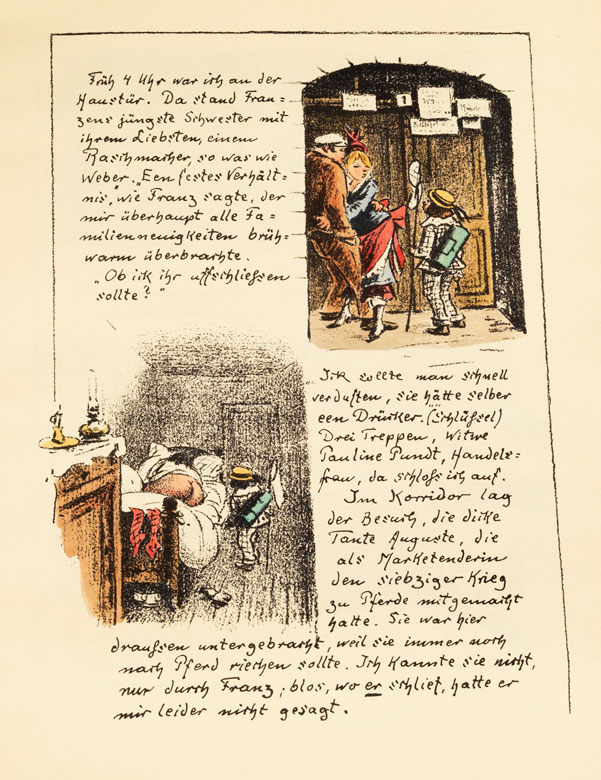 Früh 4 Uhr war ich an der
Haustür. Da stand Fran=
zens jüngste Schwester mit
ihrem Liebsten, einem
Raschmacher, so was wie
Weber. „Een festes Verhält=
nis", wie Franz sagte, der
mir überhaupt alle Fa=
milienneuigkeiten brüh=
warm überbrachte.
„Ob ick ihr uffschliessen
sollte?"
1
„Ick sollte man schnell
verduften, sie hätte selber
een Drücker." (Schlüssel)
Drei Treppen, Witwe
Pauline Pundt, Handels=
frau, da schloss ich auf.
Im Korridor lag
der Besuch, die dicke
Tante Auguste, die
als Marketenderin
den siebziger Krieg
zu Pferde mitgemacht
hatte. Sie war hier
draussen untergebracht, weil sie immer noch
nach Pferd riechen sollte. Ich kannte sie nicht,
nur durch Franz; blos, wo er schlief, hatte er
mir leider nicht gesagt.